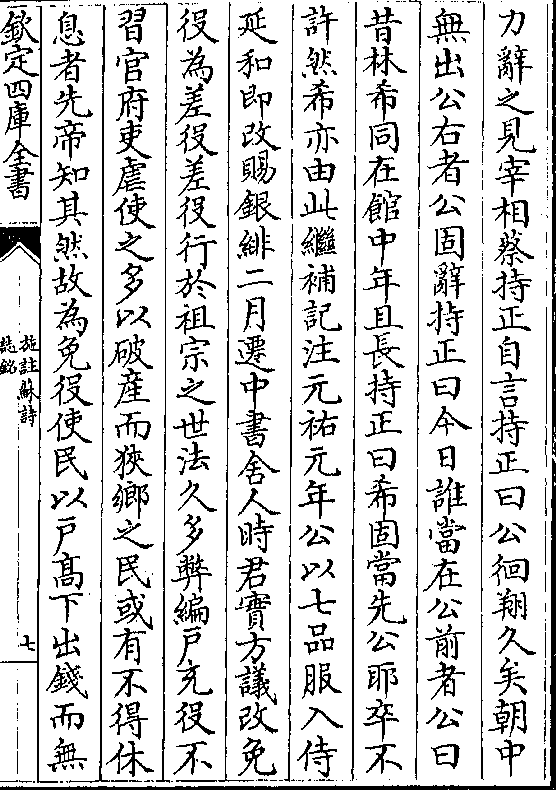 力辭之見宰相蔡持正自言持正曰公徊翔久矣朝中
無出公右者公固辭持正曰今日誰當在公前者公曰
昔林希同在館中年且長持正曰希固當先公耶卒不
許然希亦由此繼補記注元祐元年公以七品服入侍
延和即改賜銀緋二月遷中書舍人時君實方議改免
役為差役差役行於祖宗之世法久多弊編戶充役不
習官府吏虐使之多以破産而狹鄉之民或有不得休
息者先帝知其然故為免役使民以戶髙下出錢而無
欽定四庫全書
施註蘇詩
誌銘
七